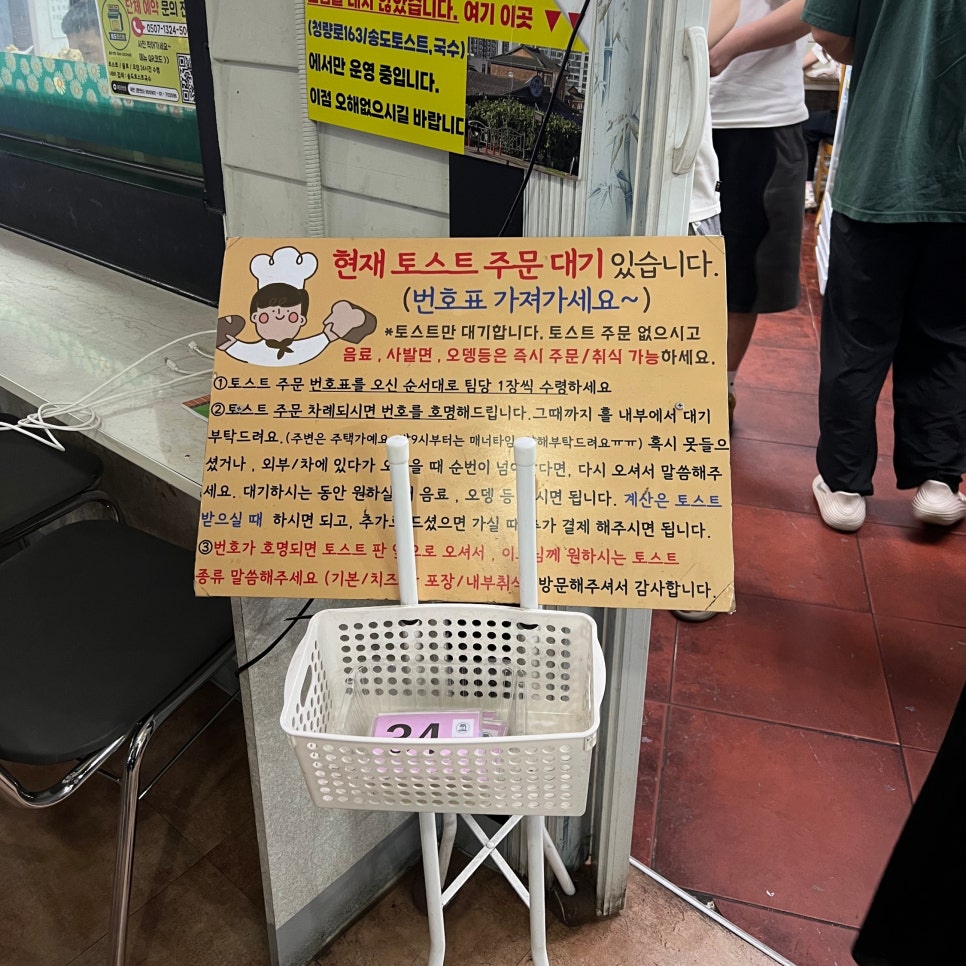 단체 예약 문의 전
0507-1324-50
여기 이곳
(청량로163/송도토스트,국수)
에서만 운영 중입니다.
이점 오해없으시길 바랍니다
현재 토스트 주문 대기 있습니다.
(번호표 가져가세요~)
*토스트만 대기합니다. 토스트 주문 없으시고
음료 , 사발면 , 오뎅등은 즉시 주문/취식 가능하세요.
①토스트 주문 번호표를 오신 순서대로 팀당 1장씩 수령하세요
②토스트 주문 차례되시면 번호를 호명해드립니다.그때까지 홀 내부에서 대기
부탁드려요.(주변은 주택가예요 9시부터는 매너타임 부탁드려요ㅠㅠ) 혹시 못들으
셨거나 , 외부/차에 있다가 때 순번이 다면, 다시 오셔서 말씀해주
세요. 대기하시는 동안 음료 , 오뎅 등 시면 됩니다. 계산은 토스트
받으실 때 하시면 되고, 드셨으면 가실 때 결제 해주시면 됩니다.
③번호가 호명되면 토스트 판 으로 오셔서 , 원하시는 토스트
종류 말씀해주세요 (기본/치즈 포장/내부취식 방문해주셔서 감사합니다.
34